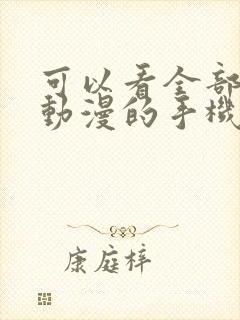 可以看全部
動漫的手機
康庭梓